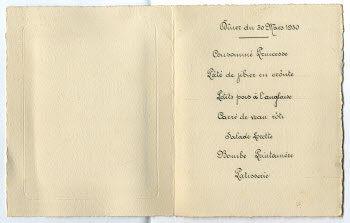 Dîner du 30 Mars 1930
Consommé Princesse
Pâté de gibier en croûte
Petits pois à l'anglaise
Carré de veau rôti
Salade Lorette
Bombe Printanière
Patisserie